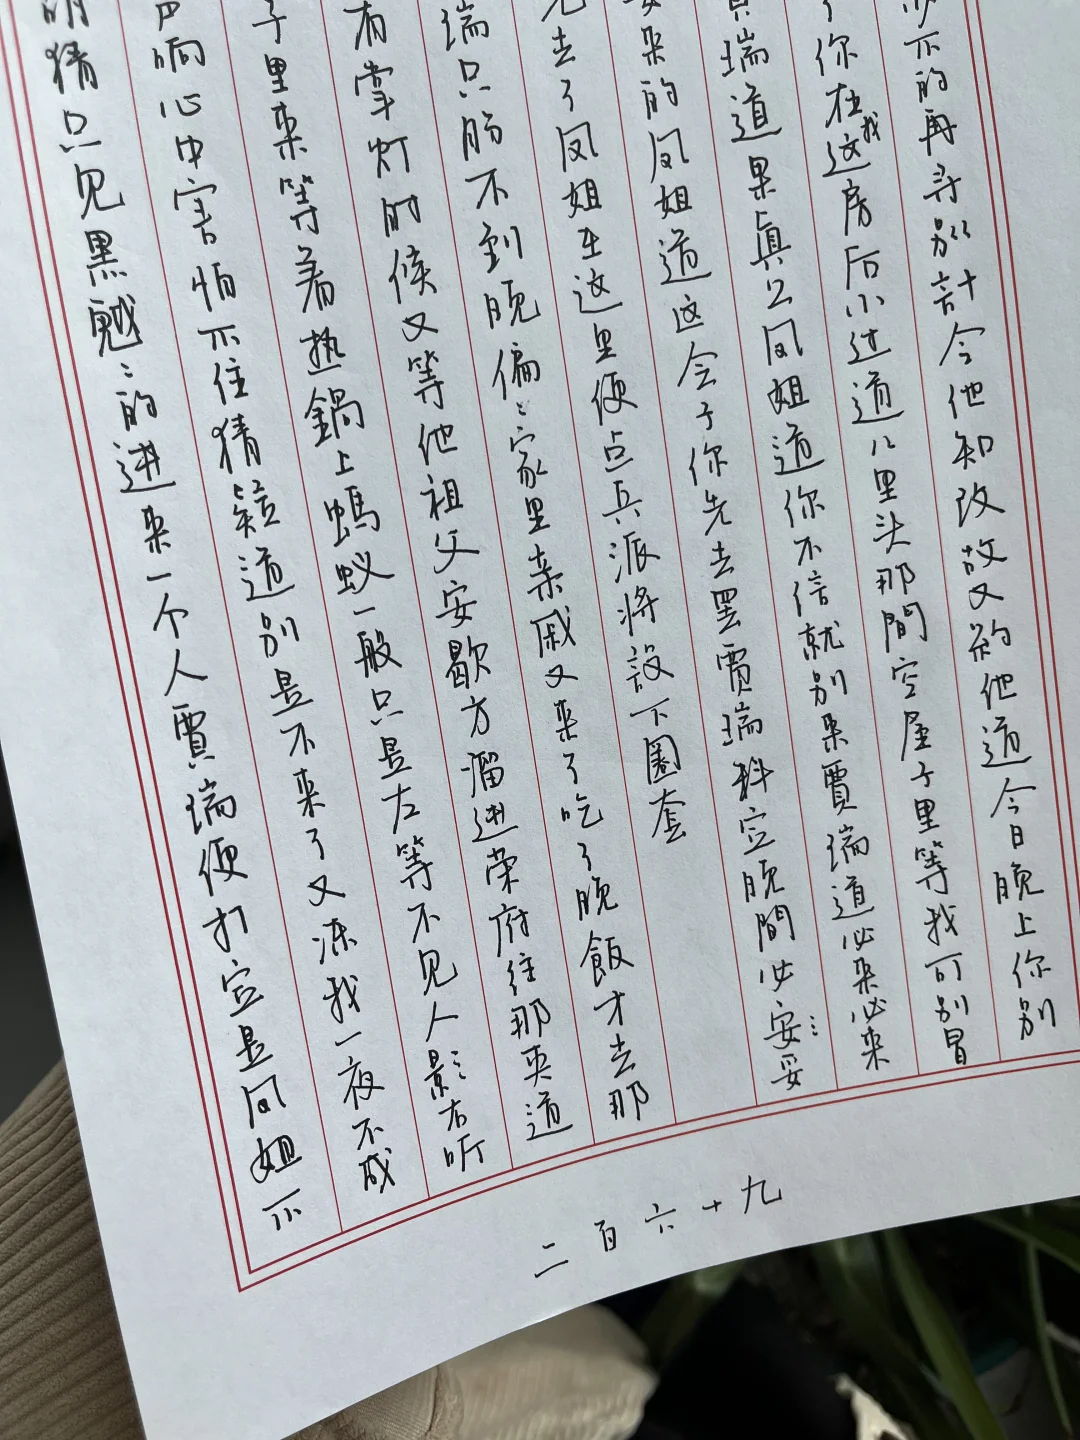 不的再寻别計令他知改故又約他道今日晚上你别
了你在我这房后小过道儿里头那間空屋子里等我可别冒
瑞道果真么凤姐道你不信就别来賈瑞道必来必来
来的凤姐道这会子你先去罢賈瑞料定晚間必妥:妥
先去了凤姐在这里便点兵派将設下圈套
瑞只盼不到晚偏:家里亲戚又来了吃了晚飯才去那
有掌灯的候又等他祖父安歇方溜进荣府往那夹道
子里来等着热鍋上螞蚁一般只是左等不见人影:右听
响心中害怕不住猜疑道别是不来了又冻我一夜不成
猜只见黑魆:的进来一个人賈瑞便打定是凤姐不
二百六十九